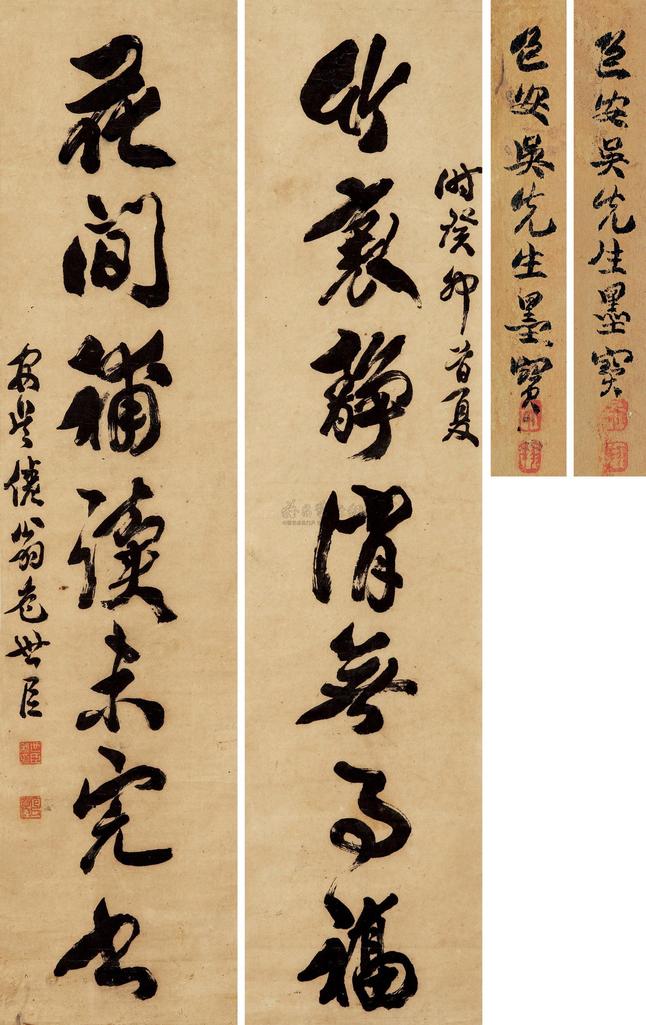 包安吳先生墨寶
包安吳先生墨寶
時癸卯首夏
竹裏靜消無事福
花間補讀未完書
安吳倦翁包世臣